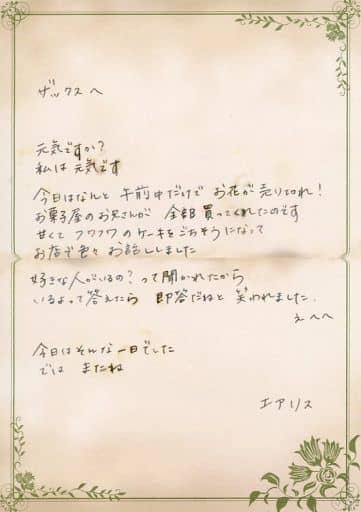 ザックスへ
元気ですか？
私は元気です
今日はなんと 午前中だけで お花が売り切れ！
お菓子屋のお兄さんが 全部買ってくれたのです
甘くて フワフワのケーキをごちそうになって
お店で色々お話ししました
好きな人がいるの？って聞かれたから
いるよって答えたら 即答だねと笑われました.
えへへ
今日はそんな一日でした
では またね
エアリス